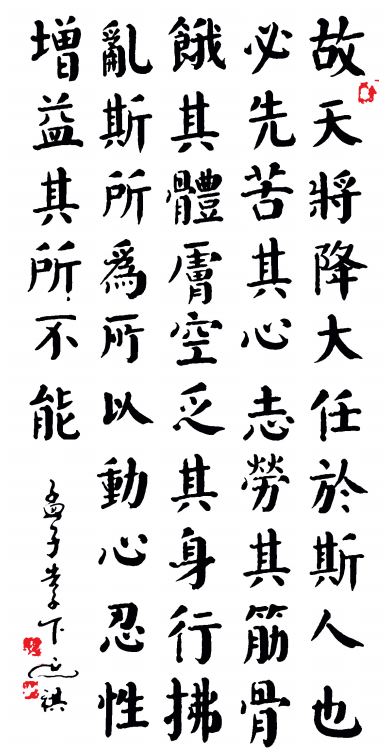 故天將降大任於斯人也
必先苦其心志勞其筋骨
餓其體膚空乏其身行拂
亂斯所爲所以動心忍性
增益其所不能
孟子